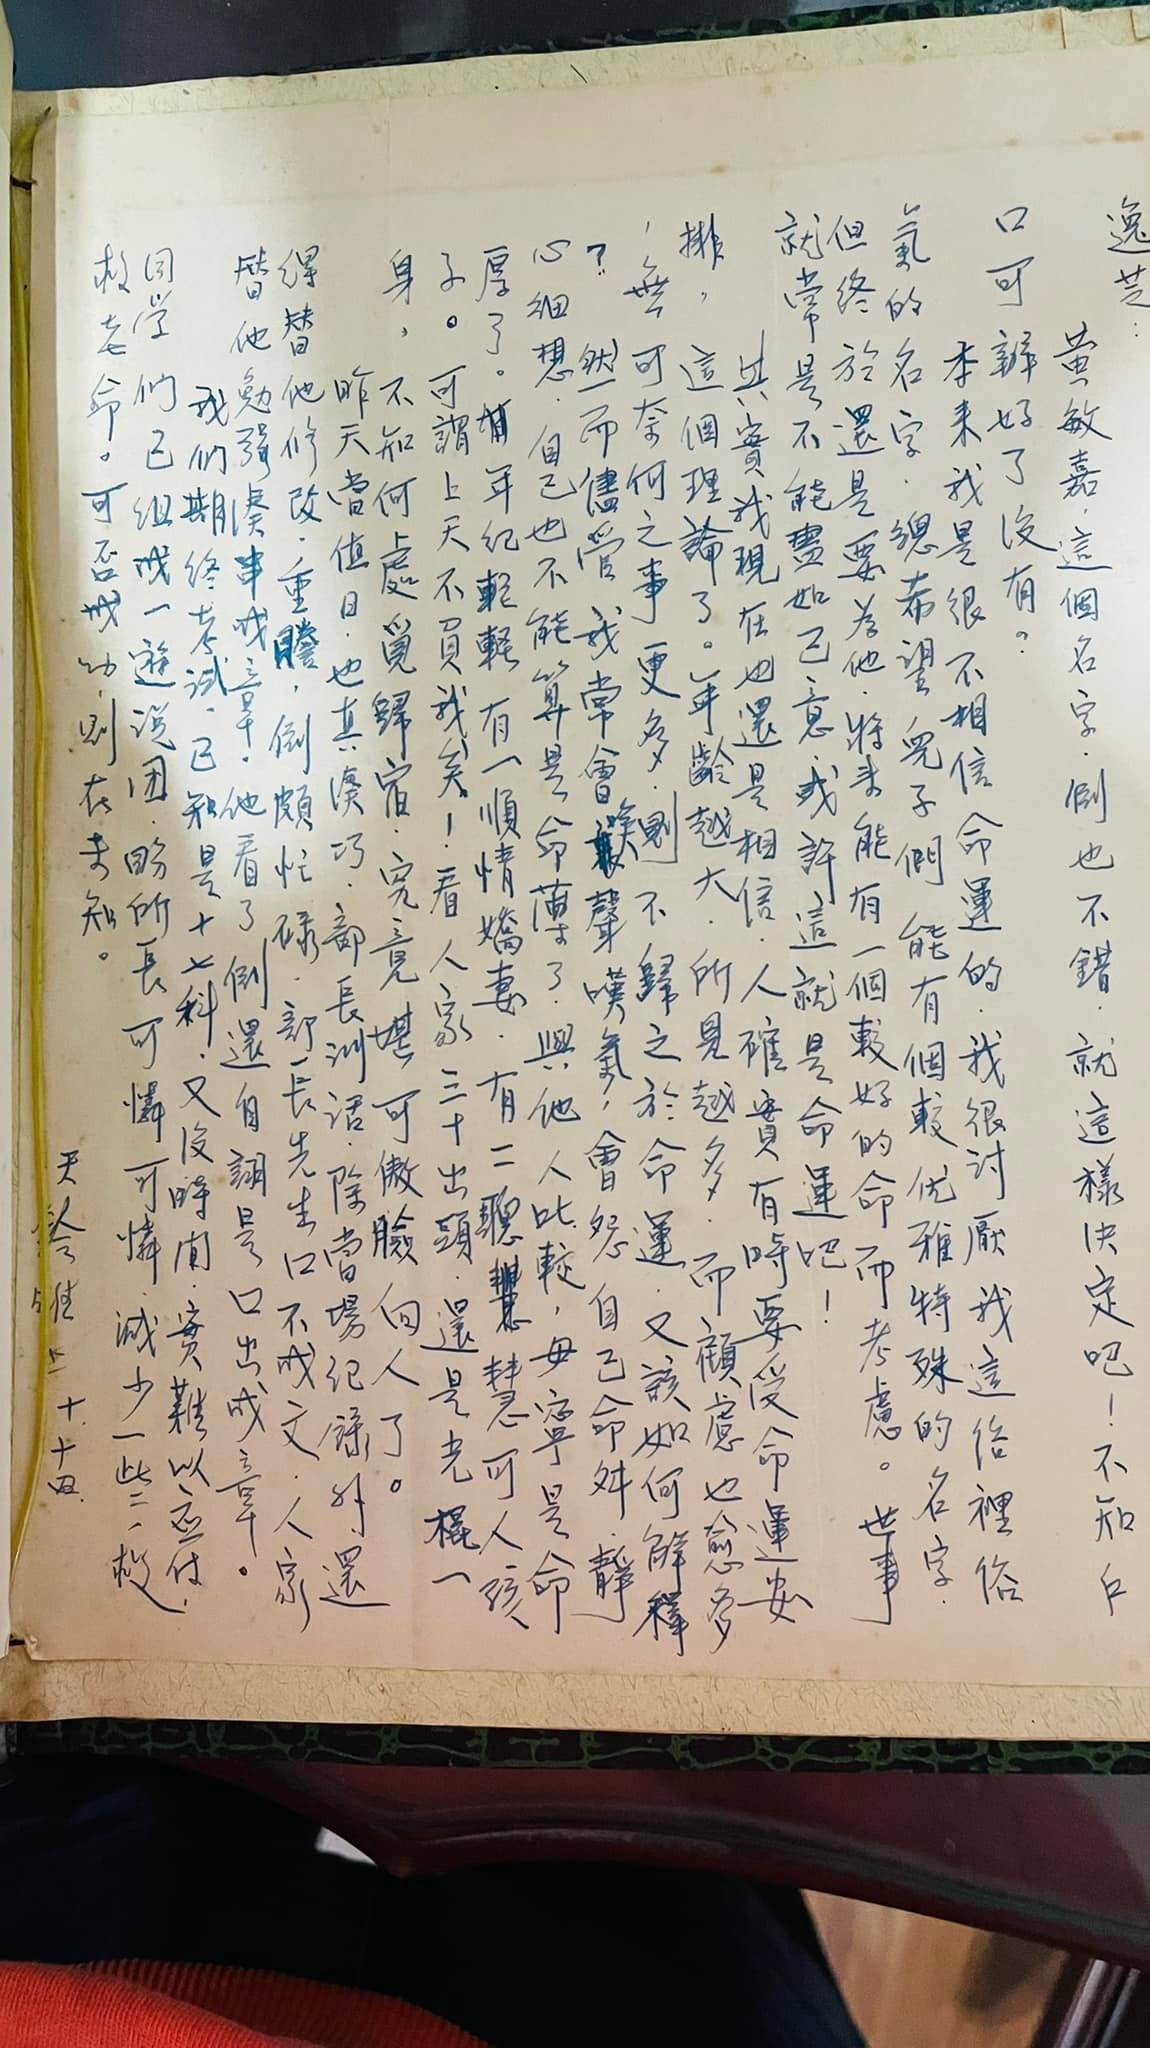 逸芸:
黃敏嘉·這個名字·倒也不錯·就這樣決定吧!不知戶
口可辦好了沒有?
本來我是很不相信命運的·我很討厭我這俗裡俗
氣的名字·總希望兒子們能有個較优雅特殊的名字·
但終於還是要為他·將來能有一個較好的命而考慮。世事
就常是不能盡如己意·或許這就是命運吧!
其實我現在也還是相信·人確實有時要受命運安
排,這個理論了。年齡越大·所見越多·而顧慮也愈多
,無可奈何之事更多·則不歸之於命運·又該如何解釋
?然而儘管我常會唉聲嘆氣,會怨自己命舛·靜
心細想·自己也不能算是命薄了·與他人比較,毋寧是命
厚了。有年紀輕輕有一順情嬌妻·有二聰慧可人孩
子。可謂上天不負我矣!看人家三十出頭·還是光棍一
身,不知何處覓歸宿·究竟堪可傲臉向人了。
昨天當值日·也真湊巧·部長訓話·除當場紀錄外·還
得替他修改·重謄,倒頗忙碌·部長先生口不成文·人家
替他勉強湊事成章·他看了倒還自詡是口出成章。
我們期終考試·已知是十七科·又沒時間·實難以應付·
同学們已組成一遊説团·略所長可憐可憐·減少一些,救
救老命。可否成功·則在未知。
天 佳 上 十·十四·